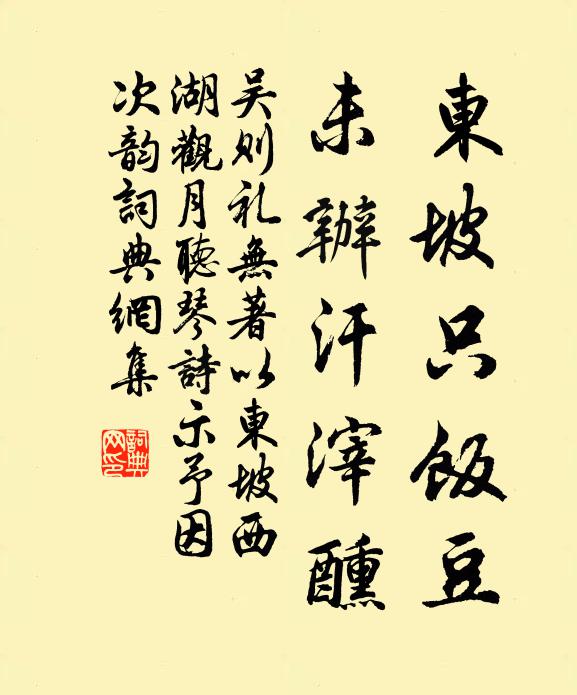 東坡只飯豆
未辦汗滓醺
吴则礼無著以東坡西
湖觀月聽琴詩示予因
次韵詞典網集
詞典
网印